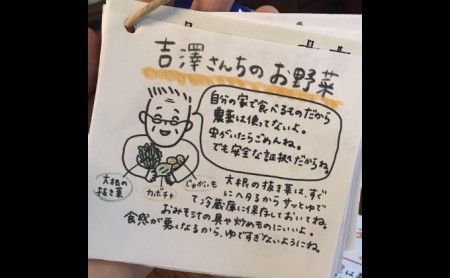 吉澤さんちのお野菜
自分の家で食べるものだから
農薬は使ってないよ。
虫がいたらごめんね。
でも安全な証拠だからね。
大根の
抜き菜
カボチャ
じゃがいも
大根の抜き菜は、すぐ
にヘタるからサッとゆで
て冷蔵庫に保存しておいてね。
おみそ汁の具や炒めものにいいよ。
食感が悪くなるから、ゆですぎないようにね。